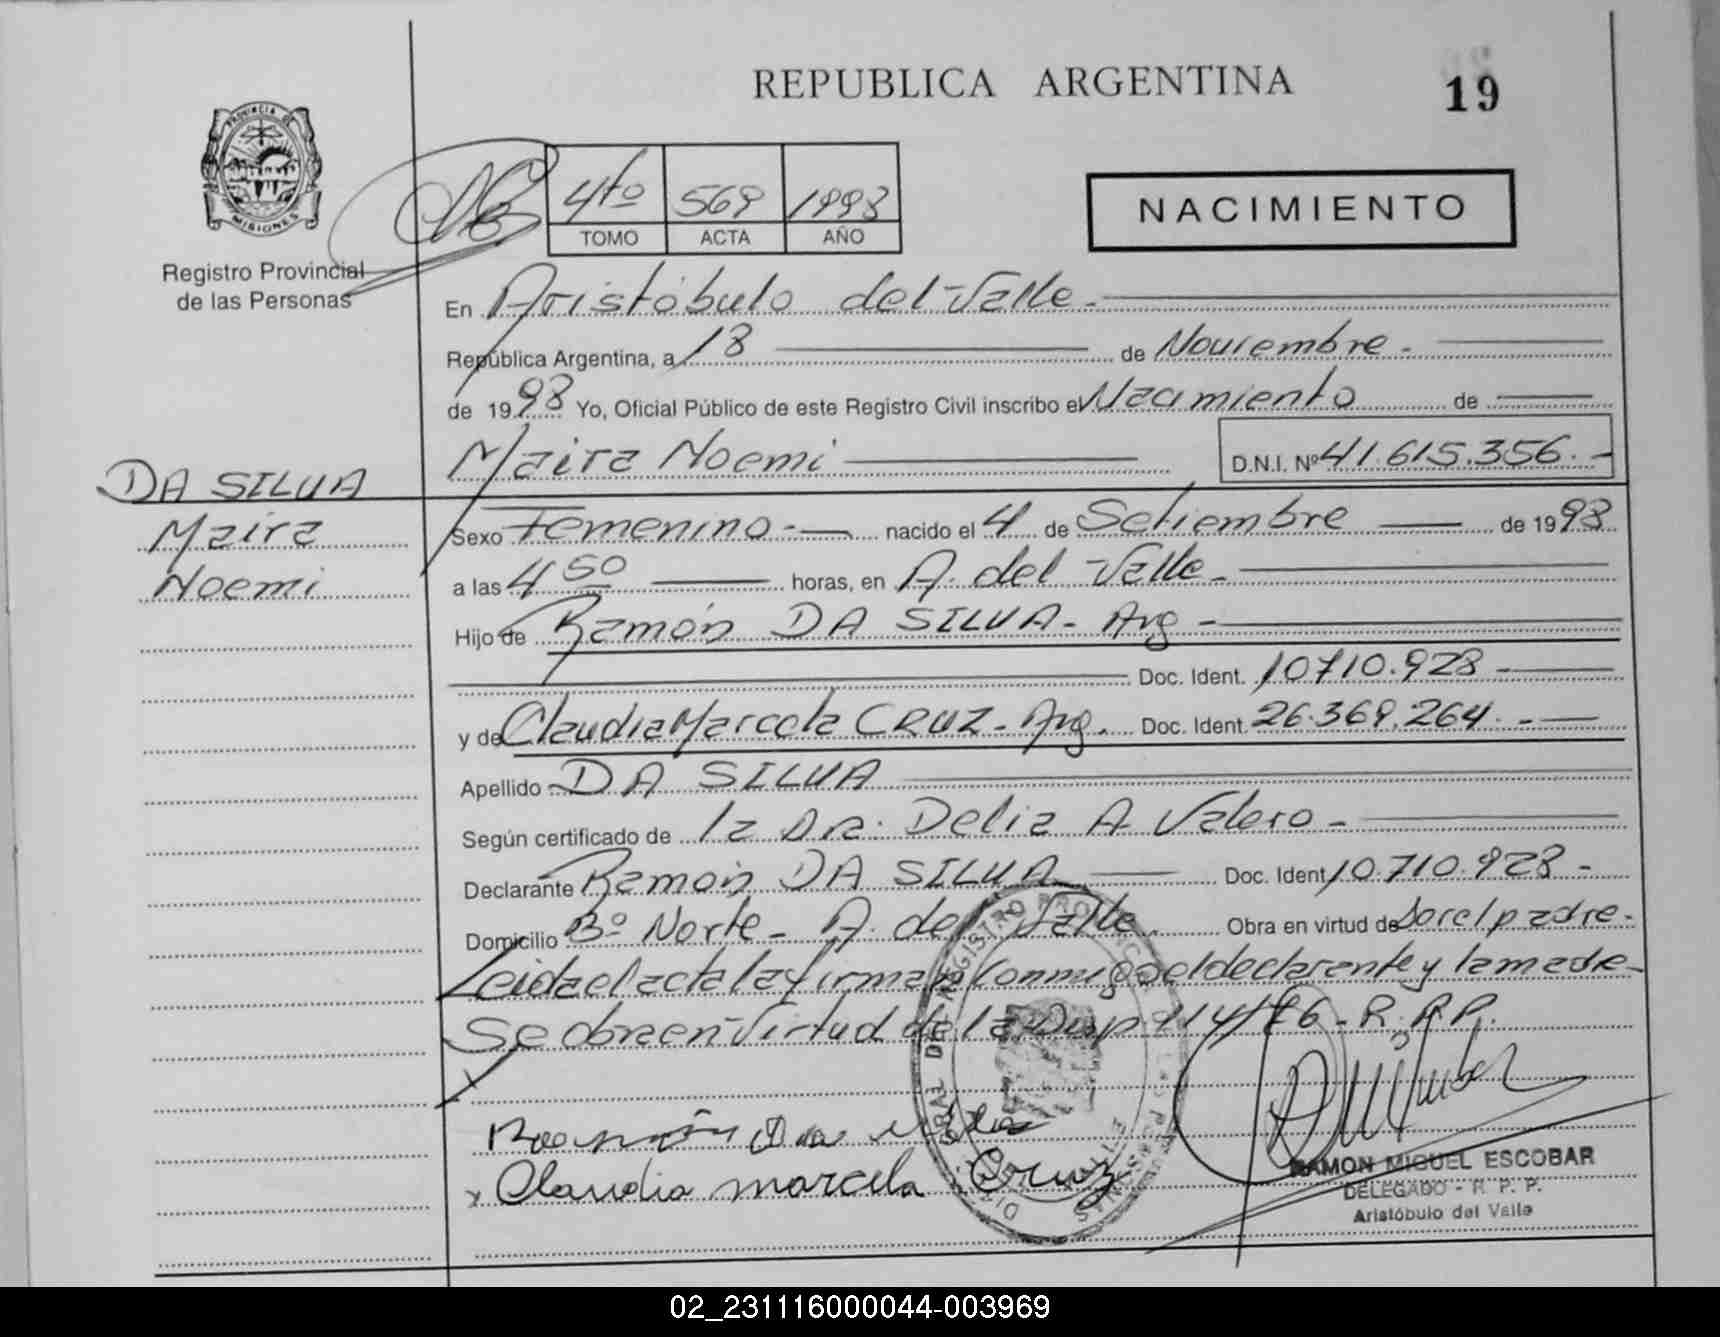 REPUBLICA ARGENTINA
19
PROVINCIA DE
MISIONES
Registro Provincial
de las Personas
4to 569 1998
TOMO ACTA AÑO
NACIMIENTO
En Aristóbulo del Valle.
República Argentina, a 18 de Noviembre.
de 1998 Yo, Oficial Público de este Registro Civil inscribo el Nacimiento de
Maira Noemi D.N.I. Nº 41.615.356.-
DA SILVA
Maira
Noemi
Sexo Femenino.- nacido el 4 de Setiembre de 1998
a las 4 50 horas, en A. del Valle-
Hijo de Ramón DA SILVA- Arg-
Doc. Ident. 10710.928-
y de Claudia Marcela CRUZ- Arg. Doc. Ident. 26.369.264.-
Apellido DA SILVA
Según certificado de la Dra. Delia A Valero-
Declarante Ramón DA SILVA Doc. Ident 10.710.928-
Domicilio Bº Norte- A. del Valle Obra en virtud de Sor el padre-
Leida el acta la firman conmigo el declarante y la madre-
Se obra en virtud de la Disp 114/76-R.P.P.
Ramón Da silva
x Claudia marcela Cruz
RAMON MIGUEL ESCOBAR
DELEGADO - R. P. P.
Aristóbulo del Valle
02_231116000044-003969